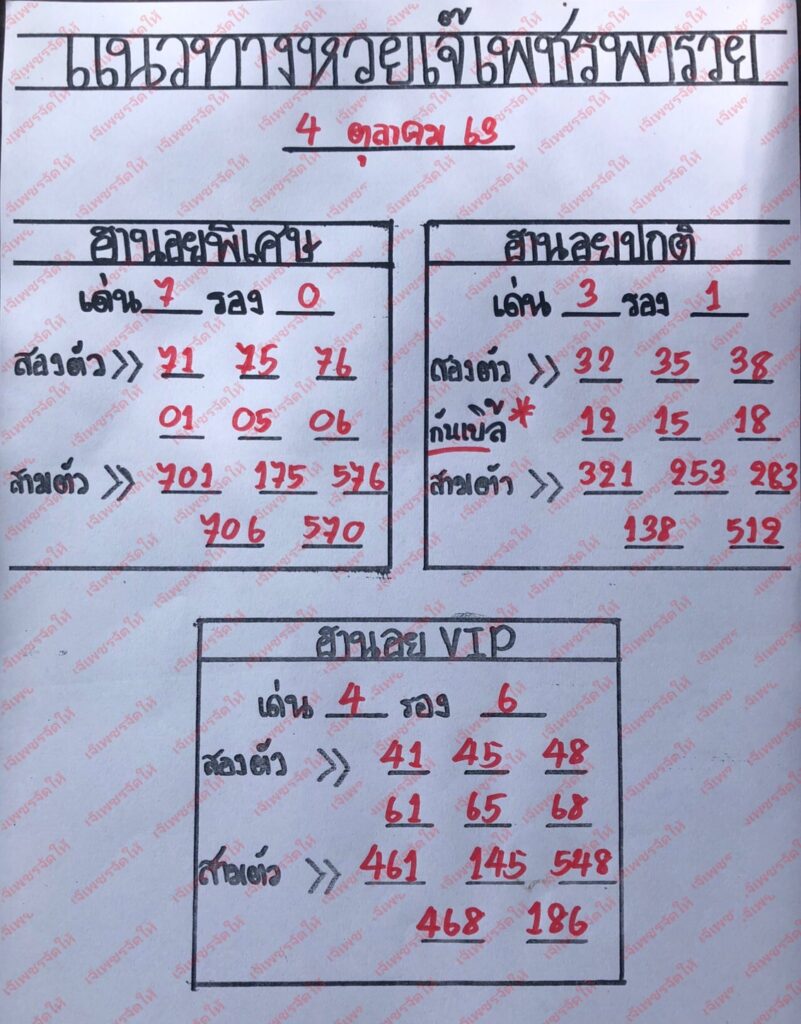 แนวทางหวยเจ๊เพชรพารวย
4 ตุลาคม 63
ฮานอยพิเศษ
เด่น 7 รอง 0
สองตัว >> 71 75 76
01 05 06
สามตัว >> 701 175 576
706 570
ฮานอยปกติ
เด่น 3 รอง 1
สองตัว >> 32 35 38
กันเบิ้ล * 12 15 18
สามตัว >> 321 253 283
138 512
ฮานอย VIP
เด่น 4 รอง 6
สองตัว >> 41 45 48
61 65 68
สามตัว >> 461 145 548
468 186
เจ๊เพชรจัดให้